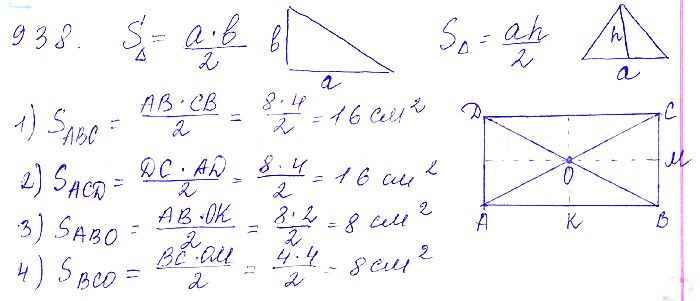 938. S△ = a·b/2 b a S△ = ah/2 h a
1) S ABC = AB·CB/2 = 8·4/2 = 16 см²
2) S ACD = DC·AD/2 = 8·4/2 = 16 см²
3) S ABO = AB·OK/2 = 8·2/2 = 8 см²
4) S BCO = BC·OM/2 = 4·4/2 = 8 см²
D C
O M
A K B